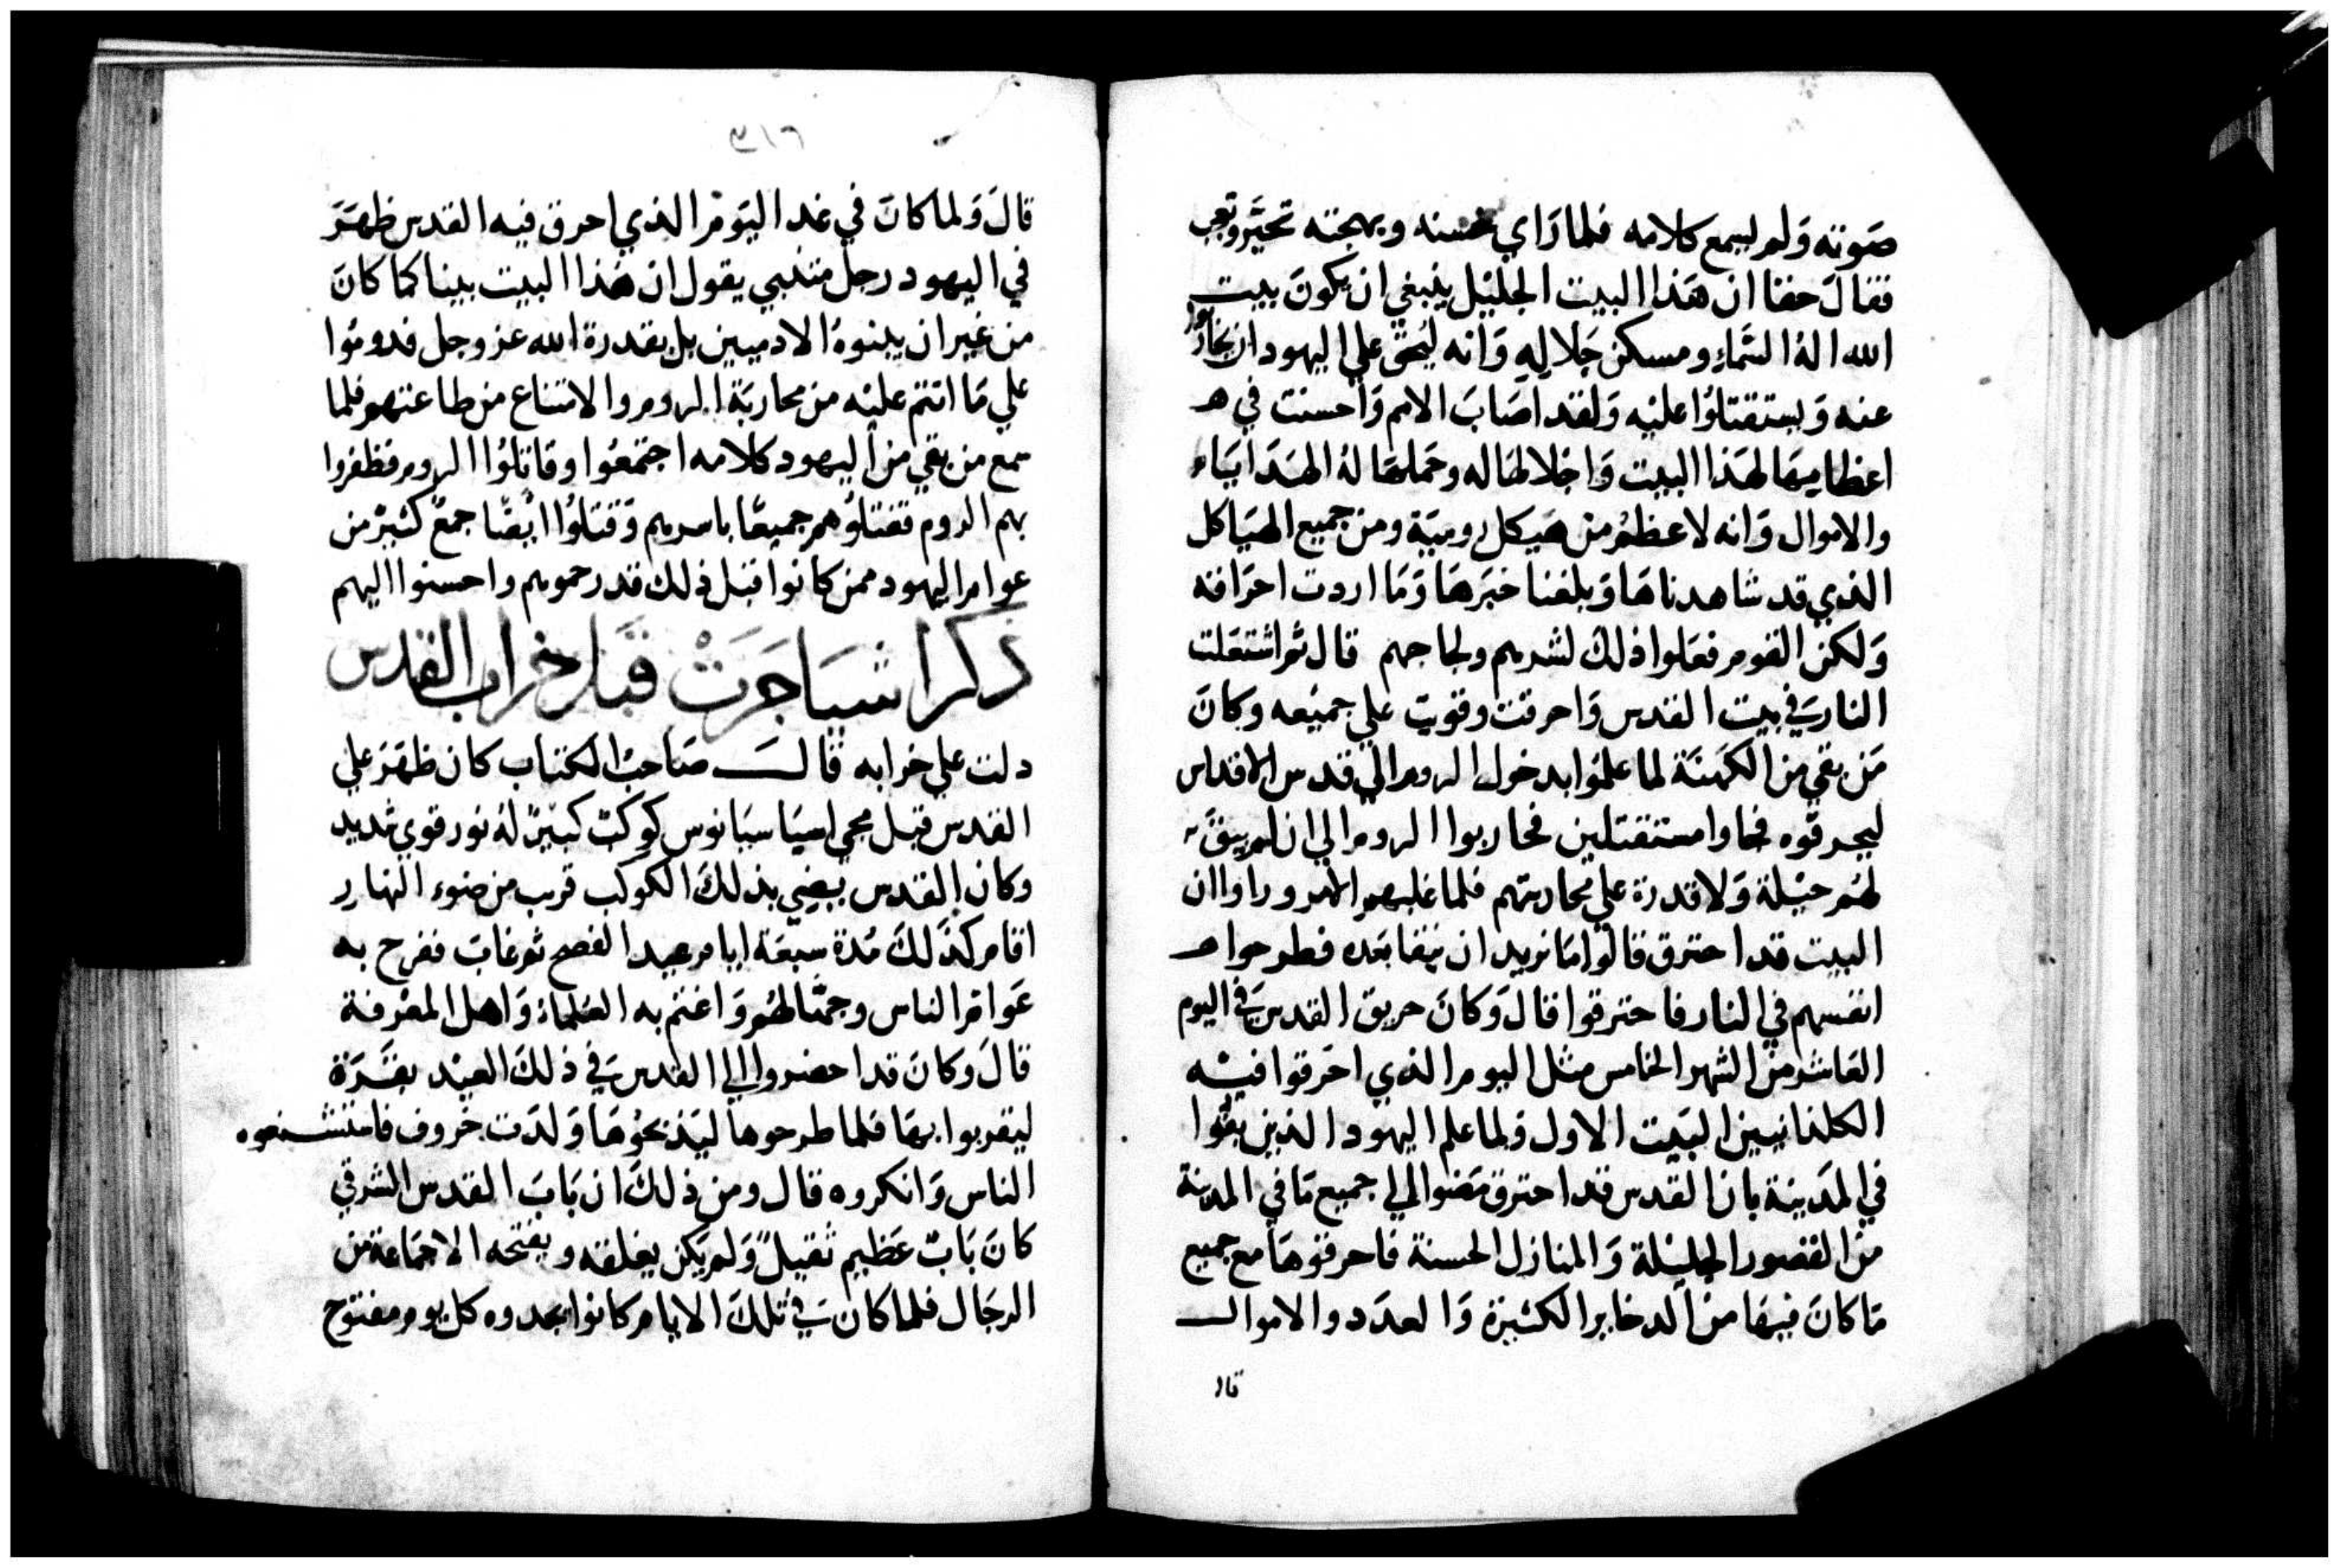 صَوته وَلم يسمع كلامه فلما رَاي حسنه وبهجته تحيَّر وتعجب
فقالَ حقا ان هَذا البيت الجليْل ينبغي ان يكونَ بيت
الله الهُ السَّماءِ ومسكن جَلالهِ وَانه ليحق علي اليهود ان يحاربُوا
عنه وَيستقتلوُا عليْه وَلقد اصَابَ الامم وَاحسنت في هـ
اعظامهَا لهَذا البيت وَاجلالهَا له وحَملهَا لهُ الهَدَايَاء
والاموال وَانه لاعظمُ من هَيكل روميَة ومن جميع الهيَاكل
الذي قد شاهدناهَا وَبلغنا خبَرهَا وَمَا اردت احرَاقه
وَلكن القوم فعَلوا ذلكَ لشرهم ولجاجهم قال ثم اشتعَلت
النار في بيت القدس وَاحرقت وقويت علي جميْعه وكانَ
مَن بقي من الكهَنَة لما علمُوا بدخول الروم الي قدس الاقداس
ليحرقوه فجاوا مستقتلين فحاربوا الروم الي ان لم يبقَ
لهُم حيْلة وَلا قدرة علي محاربتهم فلما غلبهم الامر وراوا ان
البيت قد احترق قالوا مَا نريد ان نبقا بَعده فطرحوا هـ
انفسهم في النار فاحترقوا قالَ وَكانَ حريق القدس في اليوم
العَاشر من الشهر الخامس مثل اليوم الذي احَرقوا فيْه
الكلدانيين البَيت الاول وَلما علم اليهود الذين بقُوا
في المدَينة بان القدس قد احترق مَضوا الي جميع مَا في المدينة
من القصور الجليْلة وَالمنازل الحسنة فاحرقوهَا مع جميع
مَا كانَ فيهَا من الدخاير الكثيرَة وَالعدَد والاموال
قال
٣١٦
قالَ وَلما كانَ في غد اليَوم الذي احرق فيه القدس ظهَرَ
في اليهود رجل متنبي يقول ان هَذا البيت يبنا كما كانَ
من غير ان يبنوهُ الادميين بل بقدرة الله عز وجل فدومُوا
علي مَا انتم عليْه من محاربَة الروم والامتناع من طاعتهم فلما
سمع من بقي من اليهود كلامه اجتمعُوا وقاتلوُا الروم فظفروا
بهم الروم فقتلوُهم جميعًا باسرهم وَقتلوُا ايضًا جمعٌ كثيرٌ من
عوام اليهود ممن كانوا قبل ذلك قد رحموهم واحسنوا اليهم
ذكر اشيَا جَرَتْ قبَل خراب القدس
دلت علي خرابه قالَ صَاحبُ الكتاب كان ظهَرَ علي
القدس قبل مجي اسبَاسيَانوس كوكبٌ كبيرٌ لهُ نور قوي شديد
وكان القدس يضي بذلكَ الكوكب قرب من ضوء النهار
اقام كذَلكَ مُدة سبعَة ايام عيد الفصح ثم غابَ ففرح به
عَوام الناس وجهَّالهُم وَاغتم به العُلماءُ وَاهل المعْرفة
قالَ وكانَ قد احضروا الي القدس في ذلكَ العيْد بقَرَة
ليقربوا بهَا فلما طرحوها ليَذبحوُهَا وَلدَت خروف فاستشنعوه
الناس وَانكروه قال ومن ذلكَ ان بَابَ القدس الشرقي
كانَ بَابٌ عَظيم ثقيلٌ وَلم يَكن يغلقه ويفتحه الا جمَاعة من
الرجَال فلما كان في تلكَ الايام كانوا يجدوه كل يوم مفتوح